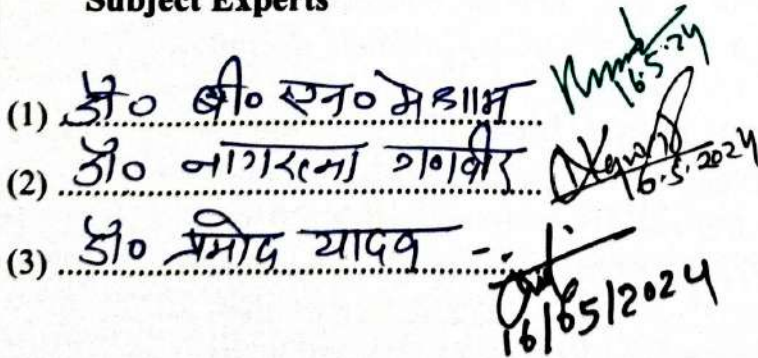 Subject Experts
(1) डॉ० बी० एन० मेश्राम 16.5.24
(2) डॉ० नागरत्ना गणवीर 16.5.2024
(3) डॉ० प्रमोद यादव - 16/05/2024